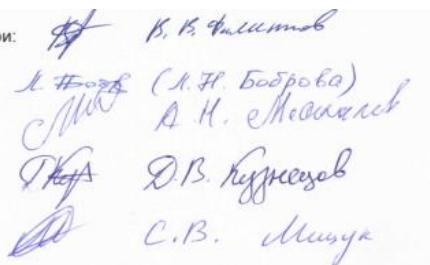 ри: К. В. Филиппов
(Л. Н. Боброва)
А. Н. Москалев
Д. В. Кузнецов
С. В. Мищук